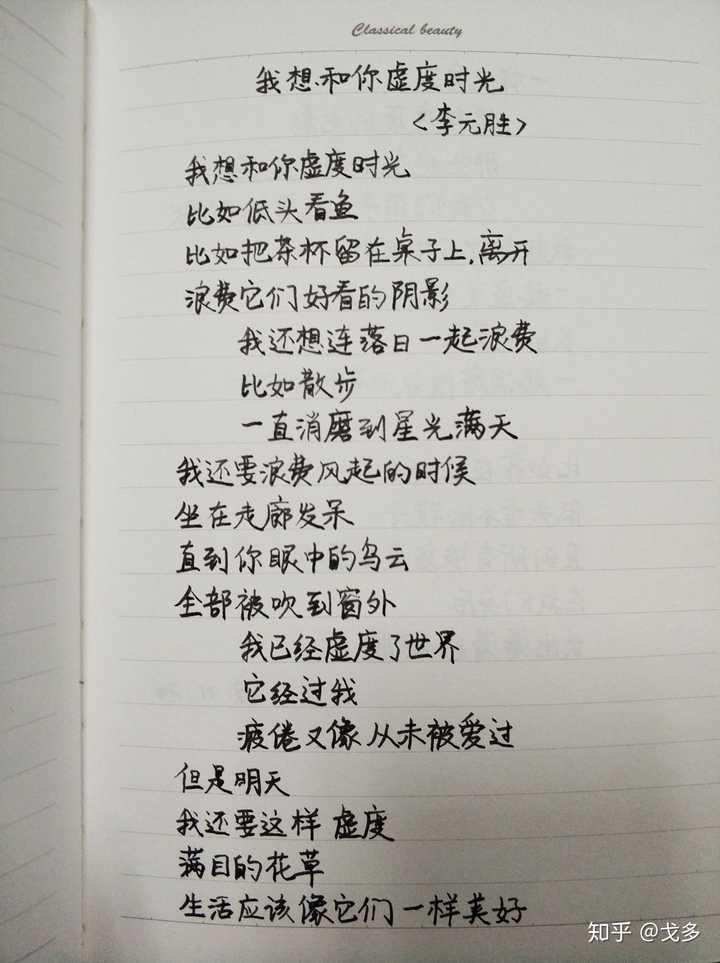 Classical beauty
我想和你虚度时光
<李元胜>
我想和你虚度时光
比如低头看鱼
比如把茶杯留在桌子上,离开
浪费它们好看的阴影
我还想连落日一起浪费
比如散步
一直消磨到星光满天
我还要浪费风起的时候
坐在走廊发呆
直到你眼中的乌云
全部被吹到窗外
我已经虚度了世界
它经过我
疲倦又像从未被爱过
但是明天
我还要这样虚度
满目的花草
生活应该像它们一样美好
知乎 @戈多